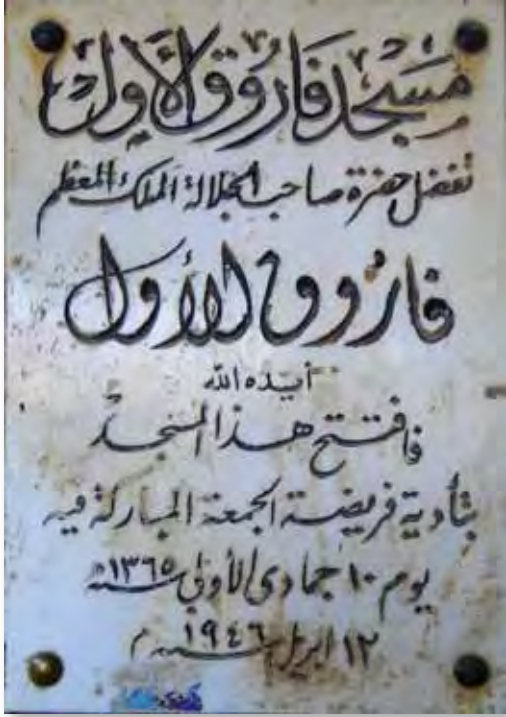 مسجد فاروق الأول
تفضل حضرة صاحب الجلالة الملك المعظم
فاروق الأول
أيده الله
فافتتح هذا المسجد
بتأدية فريضة الجمعة المباركة فيه
يوم ١٠ جمادى الأولى سنة ١٣٦٥
١٢ ابريل سنة ١٩٤٦ م